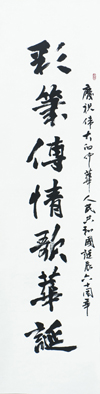 慶祝偉大的中華人民共和國誕辰六十周年
彩筆傳情歌華誕